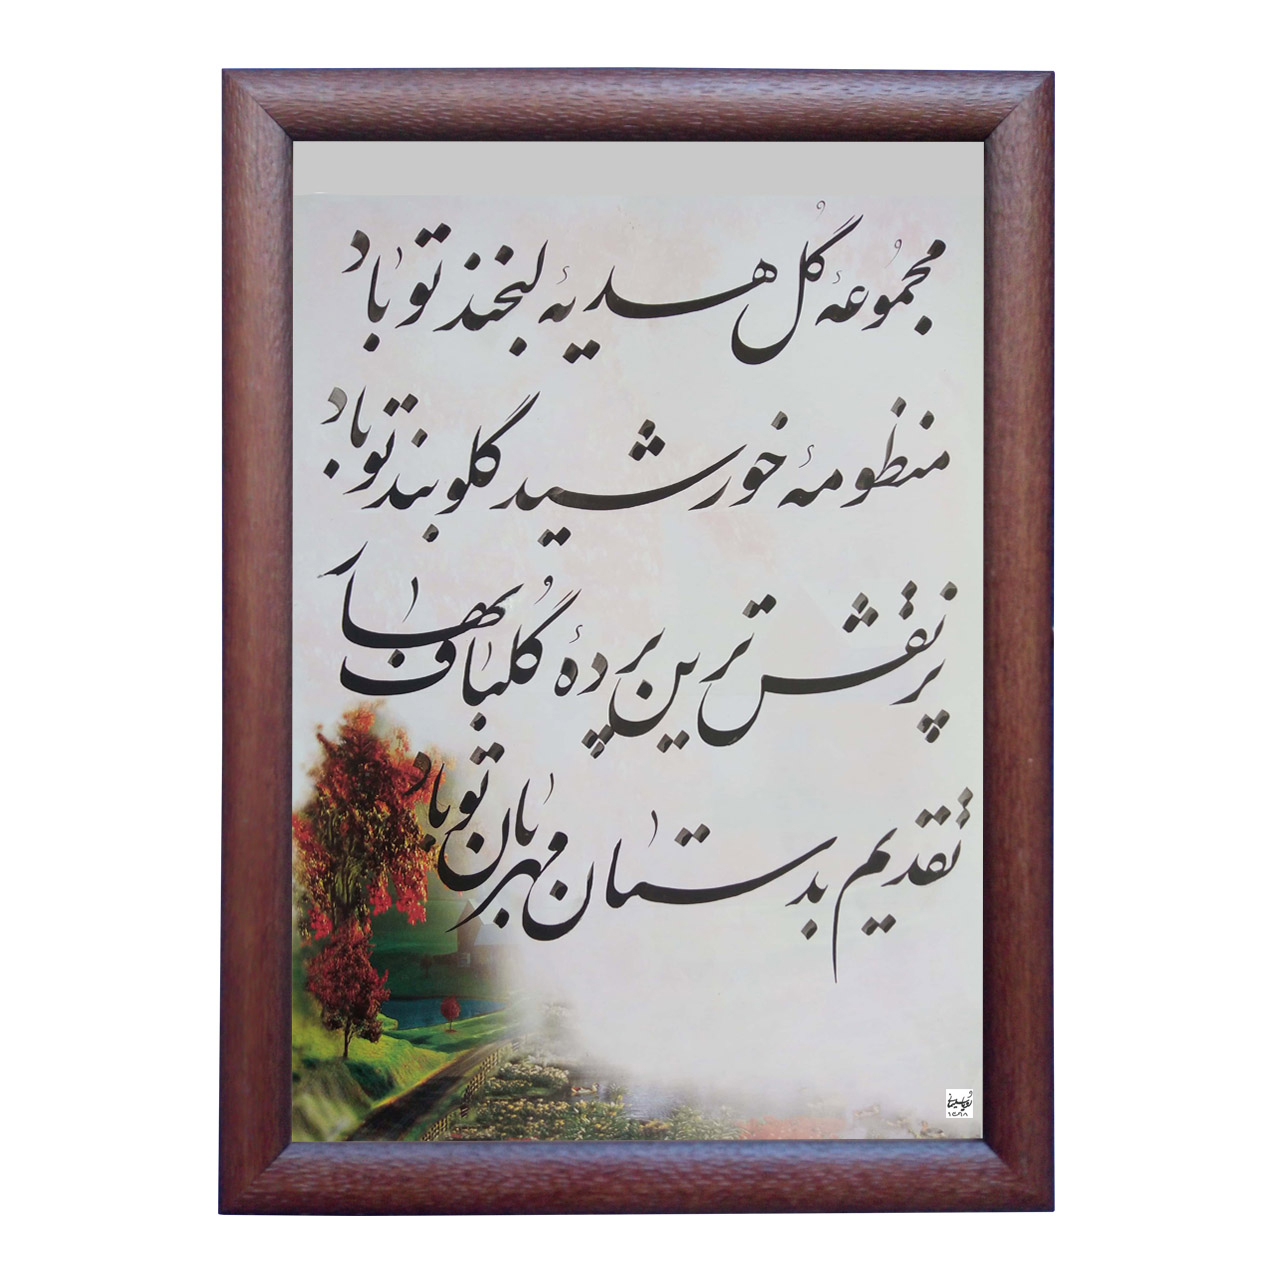 مجمُوعۀ گُل هدیۀ لبخند تو باد
منظومۀ خورشید گلوبند تو باد
پر نقش ترین پردۀ گُلباف بهار
تقدیم بدستان مهربان تو باد